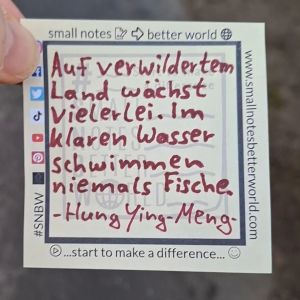 small notes better world
Auf verwildertem
Land wächst
vielerlei. Im
klaren Wasser
schwimmen
niemals Fische.
-Hung Ying-Meng-
...start to make a difference...
#SNBW
www.smallnotesbetterworld.com